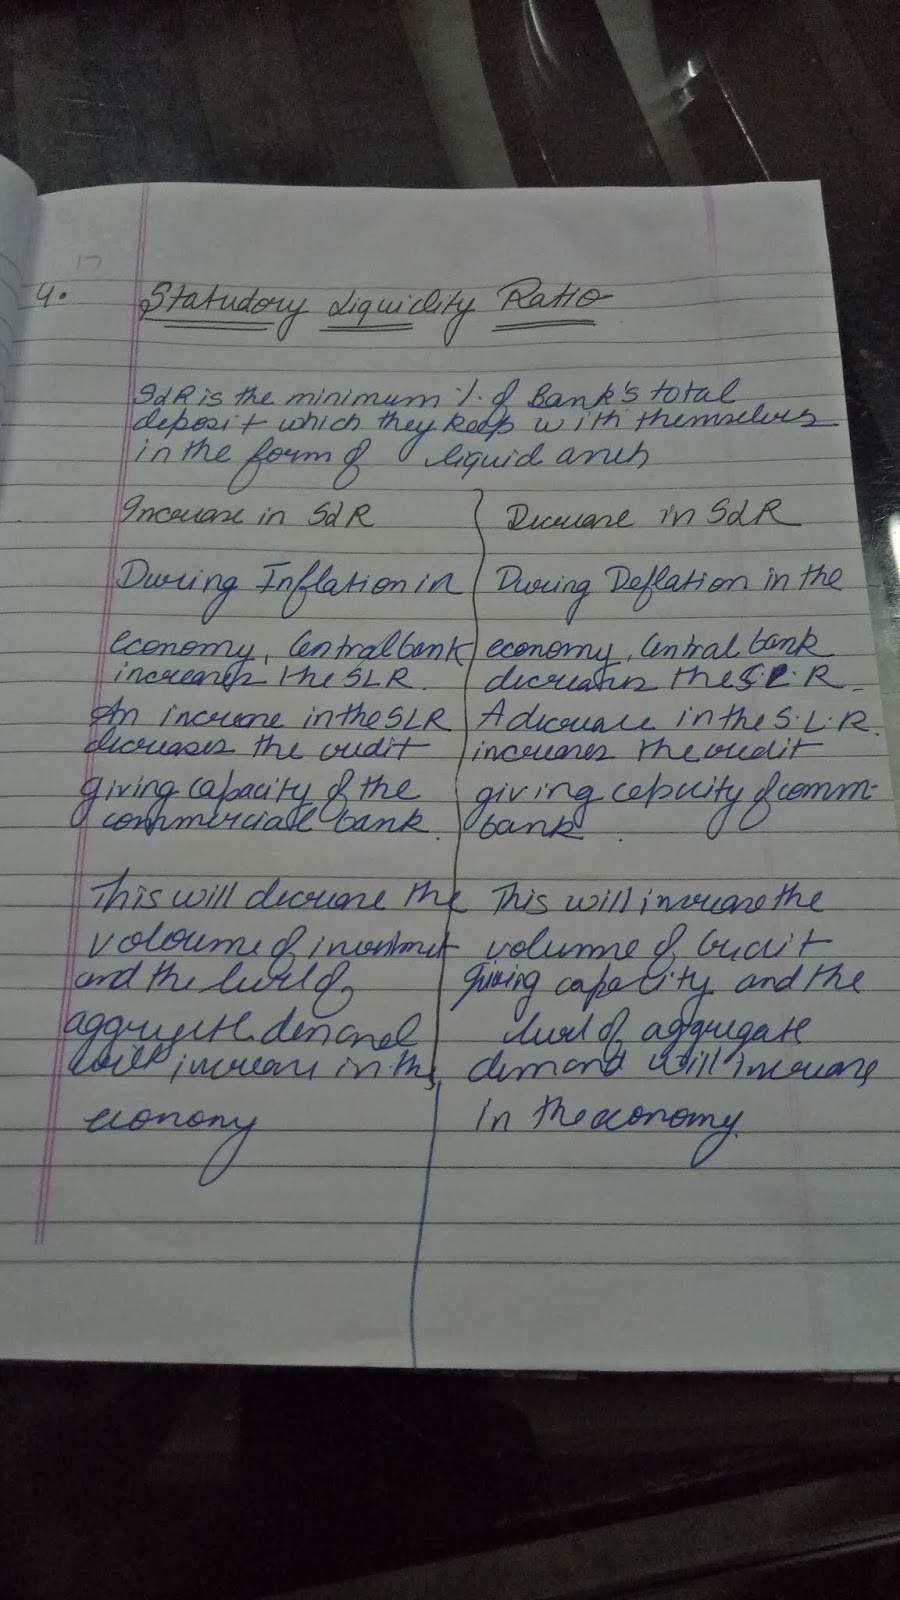 4.
Statudory Liquidity Ratio
SLR is the minimum % of Bank's total
deposit which they keep with themselves
in the form of liquid
Increase in SLR
During Inflation in
economy, Central bank
increases the SLR.
An increase in the SLR
decreases the credit
giving capacity of the
commercial bank.
This will decrease the
voloume of investment
and the level of
aggregate demand
will increase in the
economy
Decrease in SLR
During Deflation in the
economy, Central bank
decreases the S.L.R
A decrease in the S.L.R.
increases the credit
giving capacity of comm-
bank.
This will increase the
volume of credit
giving capacity and the
level of aggregate
demand will increase
in the economy.